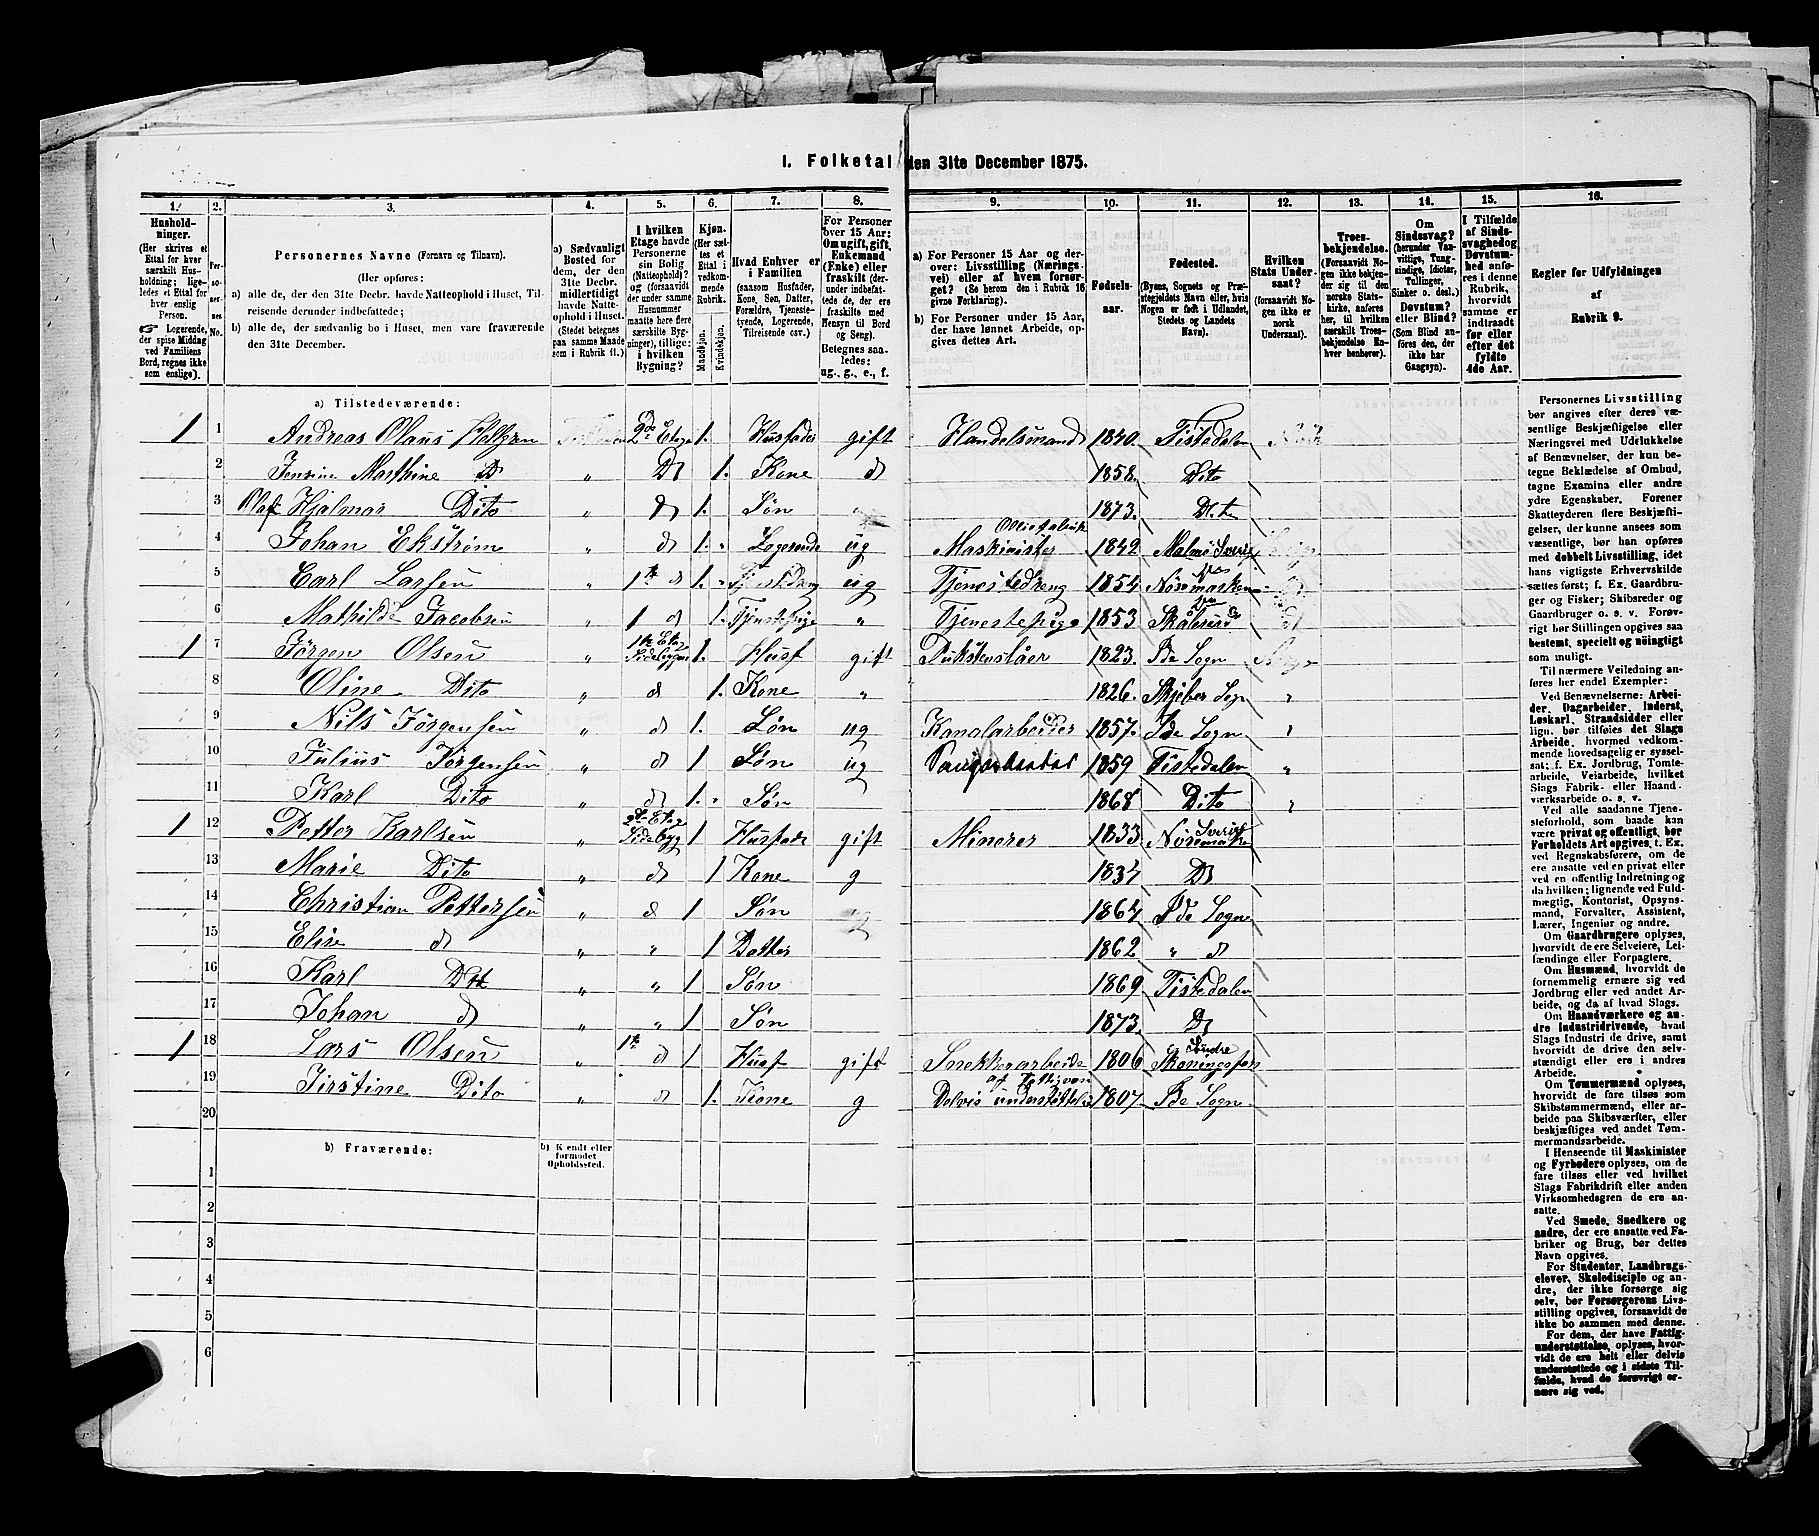 I. Folketal den 31te December 1875.
1. 2. 3. 4. 5. 6. 7. 8. 9. 10. 11. 12. 13. 14. 15. 16.
Husholdninger. (Her skrives et Ettal for hver særskilt Husholdning; ligeledes et Ettal for hver enslig Person. ☞ Logerende, der spise Middag ved Familiens Bord, regnes ikke som enslige).
Personernes No.
Personernes Navne (Fornavn og Tilnavn).
(Her opføres:
a) alle de, der den 31te Decbr. havde Natteophold i Huset, Tilreisende derunder indbefattede;
b) alle de, der sædvanlig bo i Huset, men vare fraværende den 31te December.
a) Sædvanligt Bosted for dem, der den 31te Decbr. midlertidigt havde Natteophold i Huset. (Stedet betegnes paa samme Maade som i Rubrik 11.)
I hvilken Etage havde Personerne sin Bolig (Natteophold)? og (forsaavidt der under samme Husnummer maatte høre flere særskilte Bygninger), tillige: i hvilken Bygning?
Kjøn. (Her sættes et Ettal i vedkommende Rubrik. Mandkjøn. Kvindekjøn.
Hvad Enhver er i Familien (saasom Husfader, Kone, Søn, Datter, Forældre, Tjenestetyende, Logerende, Tilreisende osv.)
For Personer over 15 Aar: Om ugift, gift, Enkemand (Enke) eller fraskilt (derunder indbefattede de, der ere fraskilte med Hensyn til Bord og Seng). Betegnes saaledes: ug., g., e., f.
a) For Personer 15 Aar og derover: Livsstilling (Næringsvei) eller af hvem forsørget? (Se herom den i Rubrik 16 givne Forklaring).
b) For Personer under 15 Aar, der have lønnet Arbeide, opgives dettes Art.
Fødselsaar.
Fødested. (Byens, Sognets og Præstegjeldets Navn eller, hvis Nogen er født i Udlandet, Stedets og Landets Navn).
Hvilken Stats Undersaat? (forsaavidt Nogen ikke er norsk Undersaat).
Troesbekjendelse. (Forsaavidt Nogen ikke bekjender sig til den norske Statskirke, anføres her, til hvilken særskilt Troesbekjendelse Enhver henhører).
Om Sindssvag? (herunder Vanvittige, Tungsindige, Idioter, Tullinger, Sinker o. desl.) Døvstum? eller Blind? (Som Blind anføres den, der ikke har Gangsyn).
I Tilfælde af Sindssvaghed og Døvstumhed anføres i denne Rubrik, hvorvidt samme er indtraadt før eller efter det fyldte 4de Aar.
Regler for Udfyldningen af Rubrik 9.
a) Tilstedeværende:
1 1 Andreas Olaus 2de Etage 1. Husfader gift Handelsmand 1840. Tistedalen
2 Marthine D " D 1. Kone d 1858. Dito
3 Olaf Hjalmar Dito " d 1. Søn " 1873. Dito
4 Johan Ekstrøm " d 1. Logerende ug Maskinister 1849 Malmø Sverig
5 Carl Larsen " 1te d 1. Tjenstedreng ug Tjenestedreng 1854 Nøsemarken
6 Mathilde Jacobsen " 1 d 1. Tjenstepige " Tjenestepige 1853
1 7 Jørgen Olsen " 1te Etag Sidebygn 1. Husf gift 1823. Ide Sogn
8 Oline Dito " d 1. Kone " 1826. Skjeber Sogn "
9 Nils Jørgensen " d 1. Søn ug Kanalarbeider 1857. Ide Sogn "
10 Julius Jørgensen " d 1 Søn ug 1859 Tistedalen "
11 Karl Dito " d 1. Søn 1868 Dito "
1 12 Petter Karlsen " 2de Etag Sidebyg 1 Husfade gift Minerer 1833. Sverige
13 Marie Dito " d 1 Kone g D
14 Christian Pettersen " d 1 Søn Ide Sogn
15 Elise d " " 1 Datter 1862 " d
16 Karl Dit " " 1 Søn 1869 Tistedalen
17 Johan d " " 1 Søn 1873. D
1 18 Lars Olsen " 1te d 1 Husf gift Snekkerarbeide 1806 Søndre
19 Dito " d 1. Kone g Delvis understøttelse af 1807 Ide Sogn
20
b) Fraværende: b) Kjendt eller formodet Opholdssted.
1
2
3
4
5
6
Personernes Livsstilling bør angives efter deres væsentlige Beskjæftigelse eller Næringsvei med Udelukkelse af Benævnelser, der kun betegne Beklædelse af Ombud, tagne Examina eller andre ydre Egenskaber. Forener Skatteyderen flere Beskjæftigelser, der kunne ansees som væsentlige, bør han opføres med dobbelt Livsstilling, idet hans vigtigste Erhvervskilde sættes først; f. Ex. Gaardbruger og Fisker; Skibsreder og Gaardbruger o. s. v. Forøvrigt bør Stillingen opgives saa bestemt, specielt og nøiagtigt som muligt.
Til nærmere Veiledning anføres her endel Exempler:
Ved Benævnelserne: Arbeider, Dagarbeider, Inderst, Løskarl, Strandsidder eller lign. bør tilføies det Slags Arbeide, hvormed vedkommende hovedsagelig er sysselsat; f. Ex. Jordbrug, Tomtearbeide, Veiarbeide, hvilket Slags Fabrik- eller Haandværksarbeide o. s. v.
Ved alle saadanne Tjenesteforhold, som baade kan være privat og offentligt, bør Forholdets Art opgives, t. Ex. ved Regnskabsførere, om de ere ansatte ved en privat eller ved en offentlig Indretning og da hvilken; lignende ved Fuldmægtig, Kontorist, Opsynsmand, Forvalter, Assistent, Lærer, Ingeniør og andre.
Om Gaardbrugere oplyses, hvorvidt de ere Selveiere, Leilændinge eller Forpagtere.
Om Husmænd, hvorvidt de fornemmelig ernære sig ved Jordbrug eller ved andet Arbeide, og da af hvad Slags.
Om Haandværkere og andre Industridrivende, hvad Slags Industri de drive, samt hvorvidt de drive den selvstændigt eller ere i andres Arbeide.
Om Tømmermænd oplyses, hvorvidt de fare tilsøs som Skibstømmermænd, eller arbeide paa Skibsværfter, eller beskjæftiges ved andet Tømmermandsarbeide.
I Henseende til Maskinister og Fyrbødere oplyses, om de fare tilsøs eller ved hvilket Slags Fabrikdrift eller anden Virksomhedsgren de ere ansatte.
Ved Smede, Snedkere og andre, der ere ansatte ved Fabriker og Brug, bør dettes Navn opgives.
For Studenter, Landbrugselever, Skoledisciple og andre, der ikke forsørge sig selv, bør Forsørgerens Livsstilling opgives, forsaavidt de ikke bo sammen med denne.
For dem, der have Fattigunderstøttelse, oplyses, hvorvidt de ere helt eller delvis understøttede og i sidste Tilfælde, hvad de forøvrigt ernære sig ved.